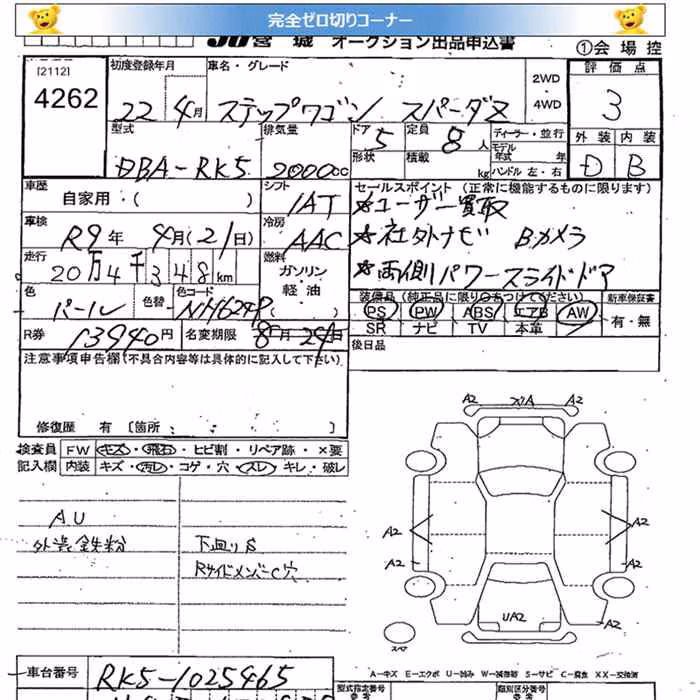 完全ゼロ切りコーナー
JU宮城 オークション出品申込書 ①会場控
[2112]
4262
初度登録年月 車名・グレード 2WD ・ 4WD 評価点
22 4月 ステップワゴン スパーダZ 3
型式 排気量 ドア 定員 ディーラー・並行 外装 内装
DBA-RK5 2000cc 5 8人 モデル年式 年 D B
形状 積載 kg ハンドル 左・右
車歴 シフト セールスポイント (正常に機能するものに限ります)
自家用・( ) IAT ☆ユーザー買取
車検 冷房
R9年 4月(21日) AAC ☆社外ナビ Bカメラ
走行 燃料
20万4千348km ガソリン・軽油 ☆両側パワースライドドア
色 色替 色コード ( )
パール NH624P
装備品 (純正品に限り○をつけてください) 新車保証書
PS PW ABS エアB AW 有・無
SR ナビ TV 本革
R券 13940円 名変期限 8月24日
後日品
注意事項申告欄(不具合内容等は具体的に記入して下さい)
修復歴 有 [箇所 ]
検査員 FW キズ・飛石・ヒビ割・リペア跡・×要
記入欄 内装 キズ・汚レ・コゲ・穴・スレ・キレ・破レ
AU
外装鉄粉 下廻りS
RサイドメンバーC穴
A2 A2
A2 A2
A2 A2
UA2 A2
スペア
A-キズ E-エクボ U-凹み W-補修跡 S-サビ C-腐食 XX-交換済
車台番号 RK5-1025465
型式指定番号 類別区分番号
参考 参考